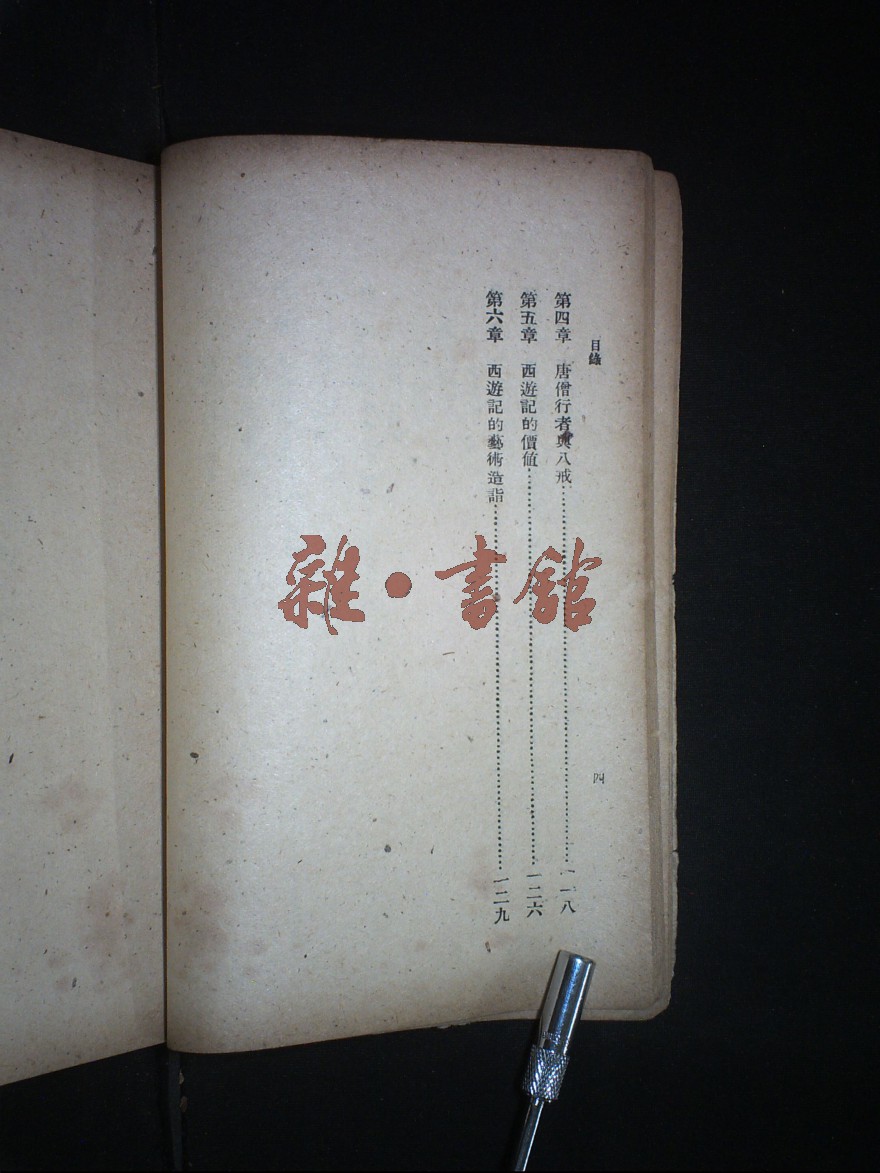 目錄
四
第四章 唐僧行者與八戒……一一八
第五章 西遊記的價值……一二六
第六章 西遊記的藝術造詣……一二九
雜·書館